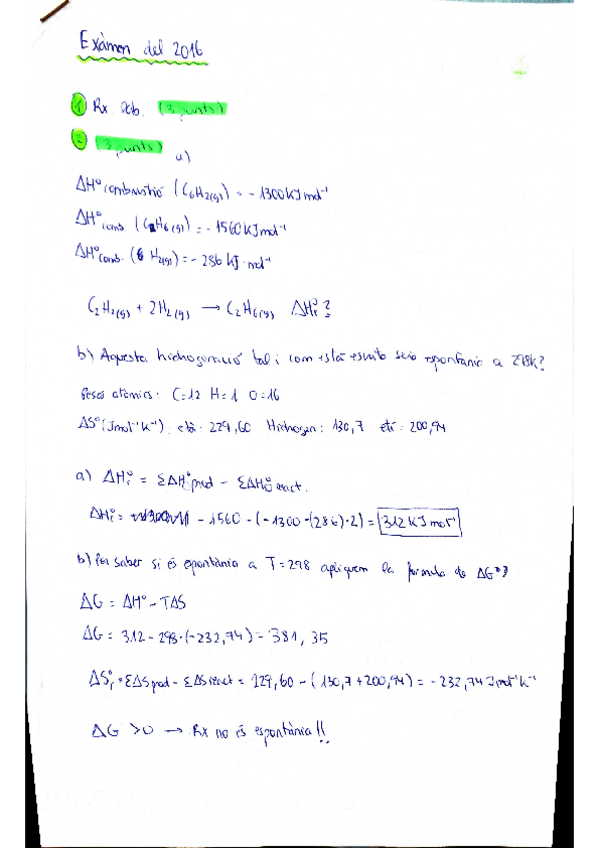 Exàmen del 2016
1 Rx Lab. (3 punts)
2 (3 punts) a)
ΔH°combustió (C6H2(g)) = -1300 KJ mol⁻¹
ΔH°comb (C2H6(g)) = -1560 KJ mol⁻¹
ΔH°comb. ( H2(g)) = -286 KJ·mol⁻¹
C2H2(g) + 2H2(g) → C2H6(g) ΔH°r?
b) Aquesta hidrogenació tal i com està escrita seria espontània a 298K?
Pesos atòmics: C=12 H=1 O=16
ΔS°(Jmol⁻¹K⁻¹) età: 229,60 Hidrogen: 130,7 etí: 200,94
a) ΔH°r = ΣΔH°prod - ΣΔH°react.
ΔH°r = -1560 - (-1300-(286)·2) = 312 KJ mol⁻¹
b) Per saber si és espontània a T=298 apliquem la formula de ΔG°?
ΔG = ΔH° - TΔS
ΔG = 312 - 298·(-232,74) = 381,35
ΔS°r = ΣΔS prod - ΣΔS react = 229,60 - (130,7+200,94) = -232,74 Jmol⁻¹K⁻¹
ΔG >0 → Rx no és espontània!!